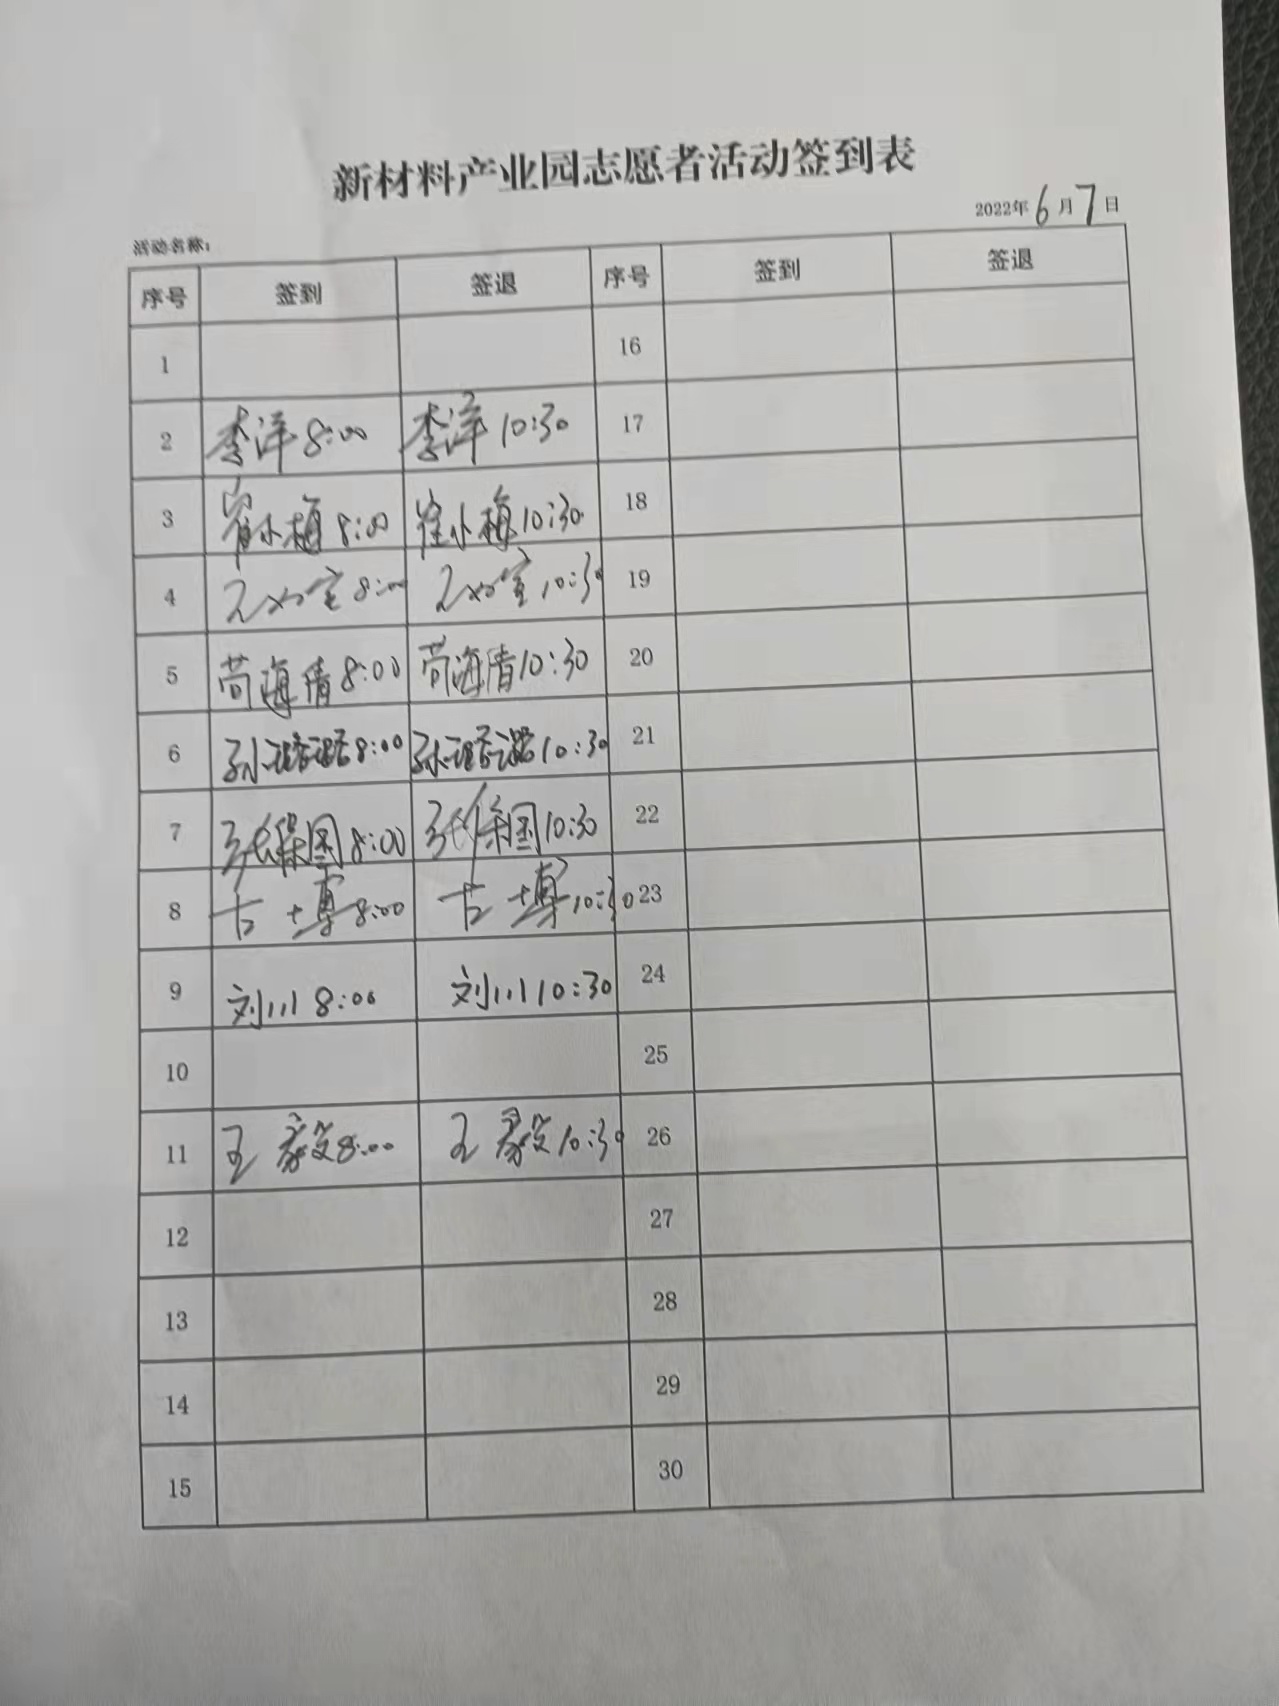 新材料产业园志愿者活动签到表
2022年6月7日
活动名称：
序号 签到 签退 序号 签到 签退
1 16
2 李洋 8:00 李洋 10:30 17
3 崔小梅 8:00 崔小梅 10:30 18
4 8:00 10:30 19
5 苟海倩 8:00 苟海倩 10:30 20
6 孙璐璐 8:00 孙璐璐 10:30 21
7 张保国 8:00 张保国 10:30 22
8 古博 8:00 古博 10:30 23
9 刘川 8:00 刘川 10:30 24
10 25
11 王毅 8:00 王毅 10:30 26
12 27
13 28
14 29
15 30